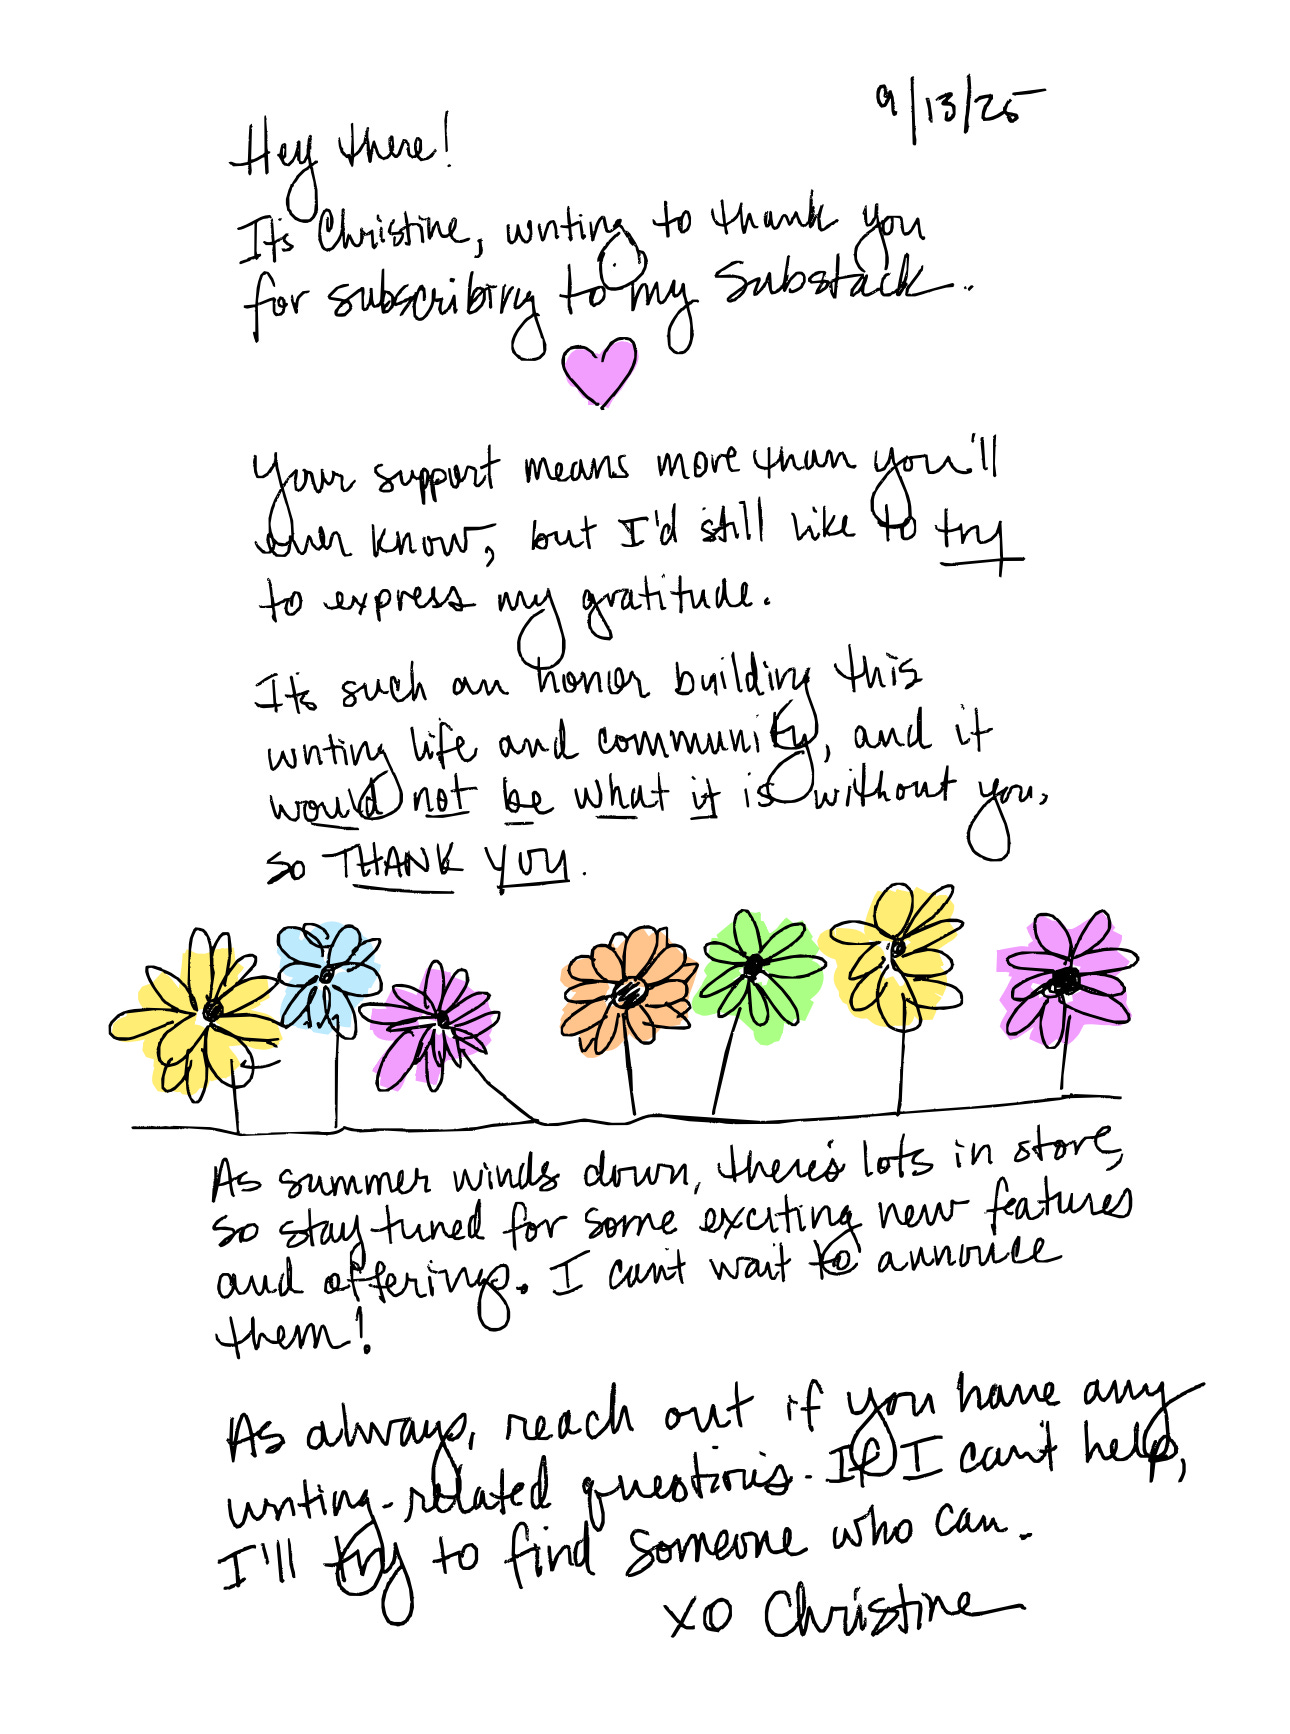 9/13/25
Hey there!
It's Christine, writing to thank you
for subscribing to my Substack.
Your support means more than you'll
ever know, but I'd still like to try
to express my gratitude.
It's such an honor building this
writing life and community, and it
would not be what it is without you,
so THANK YOU.
As summer winds down, there's lots in store,
so stay tuned for some exciting new features
and offerings. I can't wait to announce
them!
As always, reach out if you have any
writing-related questions. If I can't help,
I'll try to find someone who can.
XO Christine